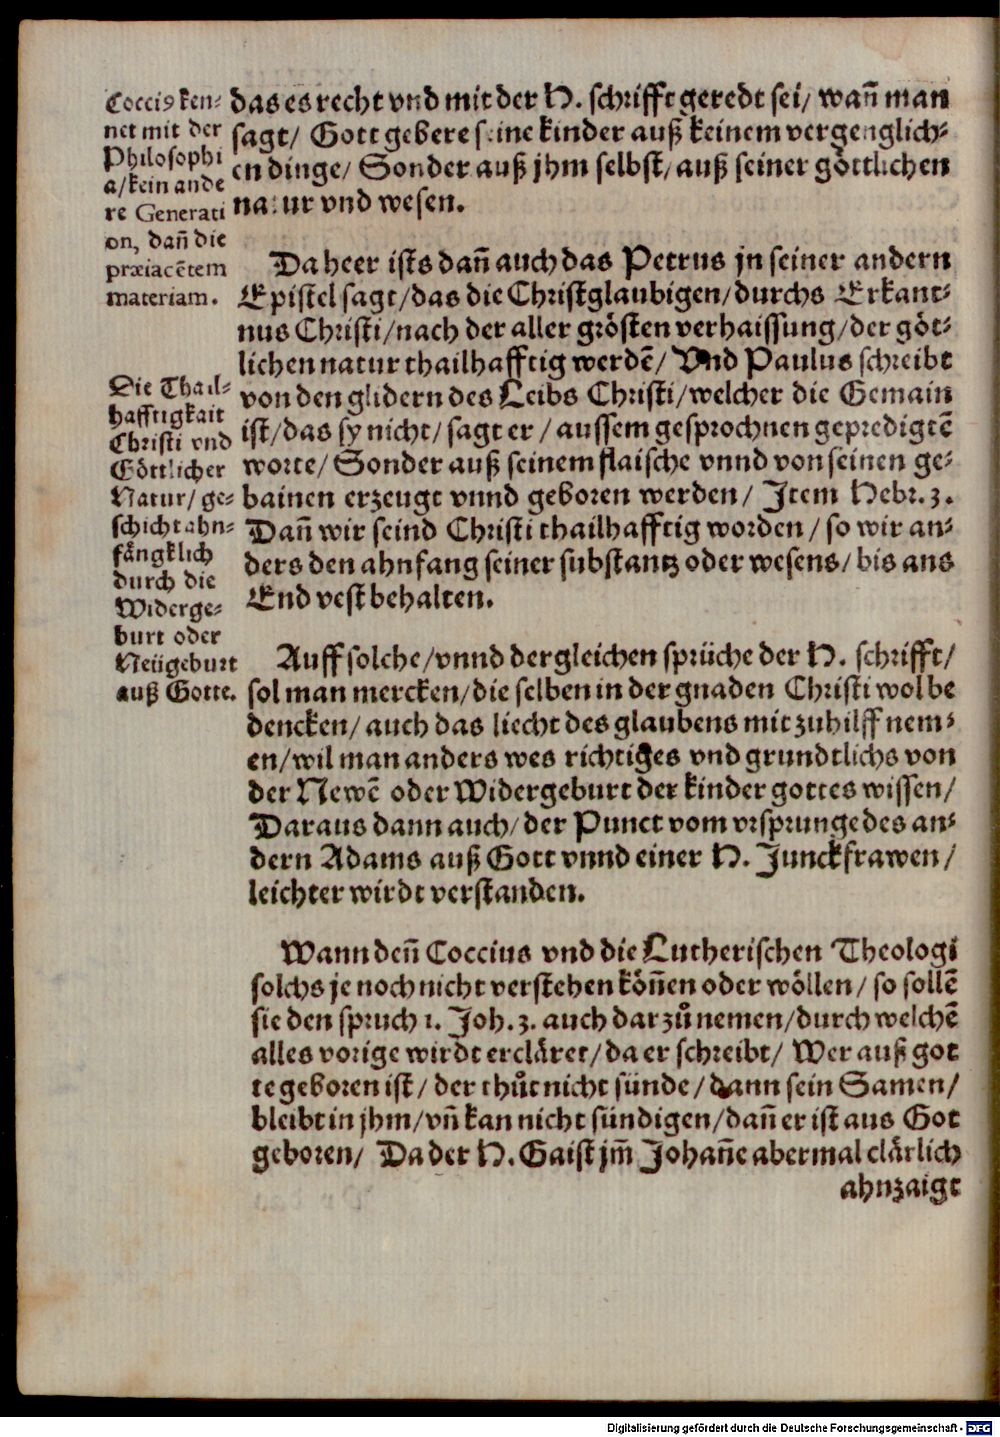 Coccius ken-
net mit der
Philosophi
a/kein ande
re Generati
on, dañ die
præiacētem
materiam.
das es recht vnd mit der H. schrifft geredt sei/ wañ man
sagt/ Gott gebere seine kinder auß keinem vergenglich-
en dinge/ Sonder auß jhm selbst/ auß seiner göttlichen
natur vnd wesen.
Da heer ists dañ auch das Petrus jn seiner andern
Epistel sagt/das die Christglaubigen/durchs Erkant-
nus Christi/nach der aller grösten verhaissung/der göt-
lichen natur thailhafftig werdē/ Vnd Paulus schreibt
von den glidern des Leibs Christi/welcher die Gemain
ist/das sy nicht/ sagt er / aussem gesprochnen gepredigtē
worte/ Sonder auß seinem flaische vnnd von seinen ge-
bainen erzeugt vnnd geboren werden/ Item Hebr. 3.
Dañ wir seind Christi thailhafftig worden/ so wir an-
ders den ahnfang seiner substantz oder wesens/ bis ans
End vest behalten.
Die Thail-
hafftigkait
Christi vnd
Göttlicher
Natur/ ge-
schicht ahn-
fängklich
durch die
Widerge-
burt oder
Neügeburt
auß Gotte.
Auff solche/vnnd dergleichen sprüche der H. schrifft/
sol man mercken/die selben in der gnaden Christi wol be
dencken/ auch das liecht des glaubens mit zuhilff nem-
en/wil man anders wes richtiges vnd grundtlichs von
der Newē oder Widergeburt der kinder gottes wissen/
Daraus dann auch/ der Punct vom vrsprunge des an-
dern Adams auß Gott vnnd einer H. Junckfrawen/
leichter wirdt verstanden.
Wann deñ Coccius vnd die Lutherischen Theologi
solchs je noch nicht verstehen köñen oder wöllen/ so sollē
sie den spruch 1. Joh. 3. auch dar zů nemen/durch welchē
alles vorige wirdt ercläret/da er schreibt/ Wer auß got
te geboren ist/ der thůt nicht sünde/ dann sein Samen/
bleibt in jhm/vñ kan nicht sündigen/dañ er ist aus Got
geboren/ Da der H. Gaist jm̄ Johañe abermal clärlich
ahnzaigt
Digitalisierung gefördert durch die Deutsche Forschungsgemeinschaft - DFG